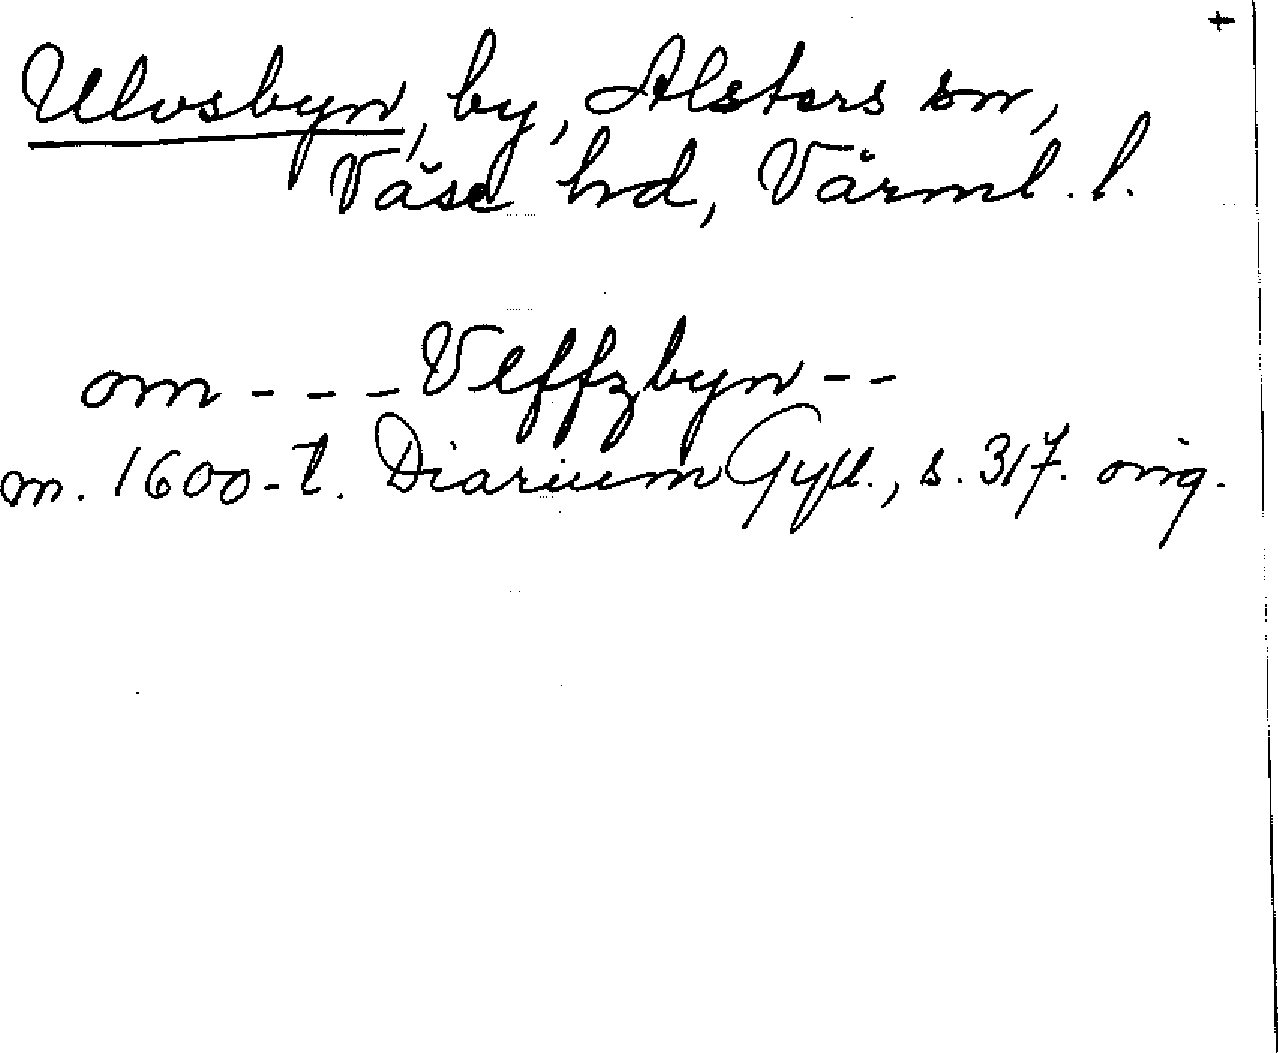 +
Ulvsbyn, by, Alsters sn,
Väse hd, Värml. l.
om - - - Vlffzbyn - -
m. 1600-t. Diarium Gyll., s. 317. orig.